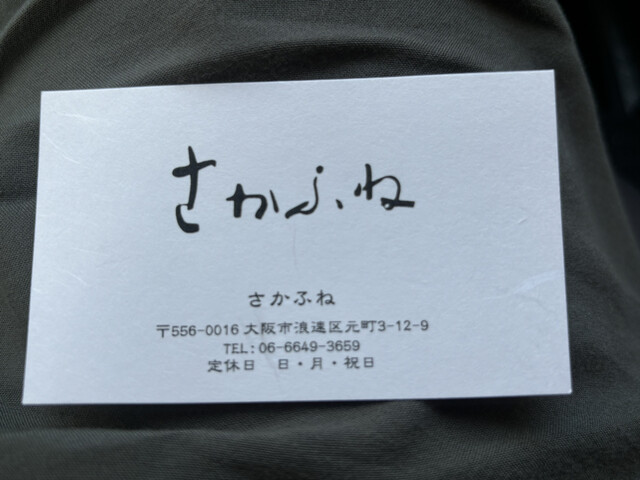 さかふね
さかふね
〒556-0016 大阪市浪速区元町3-12-9
TEL:06-6649-3659
定休日 日・月・祝日